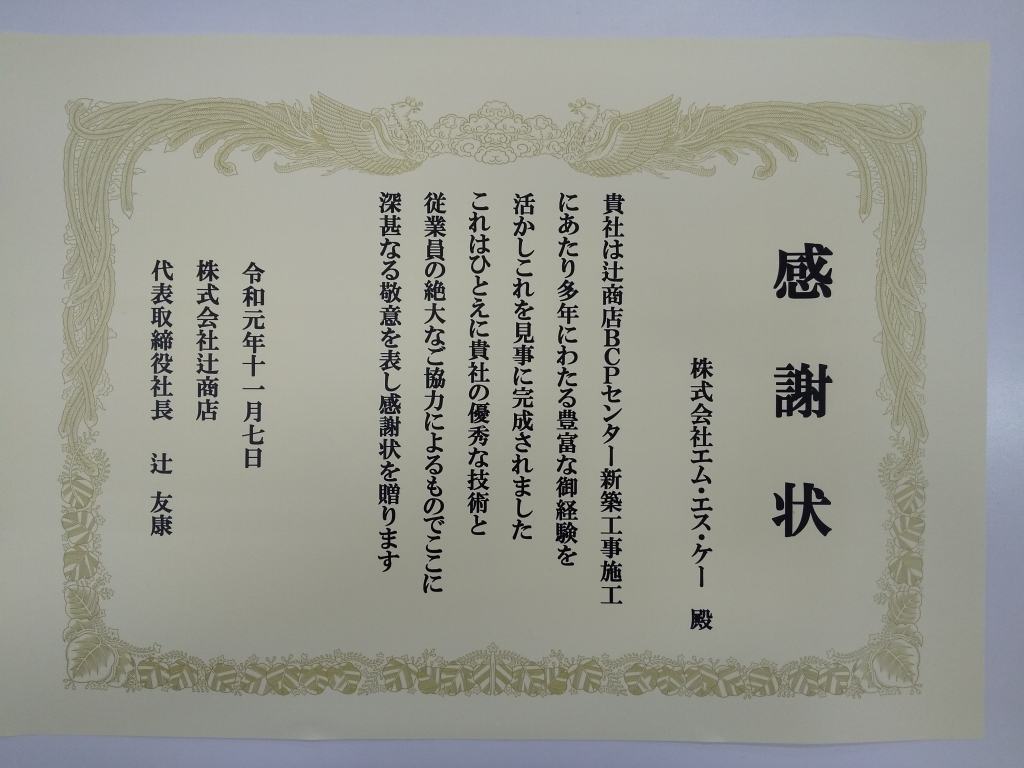 感謝状
株式会社エム・エス・ケー 殿
貴社は辻商店BCPセンター新築工事施工
にあたり多年にわたる豊富な御経験を
活かしこれを見事に完成されました
これはひとえに貴社の優秀な技術と
従業員の絶大なご協力によるものでここに
深甚なる敬意を表し感謝状を贈ります
令和元年十一月七日
株式会社辻商店
代表取締役社長 辻 友康